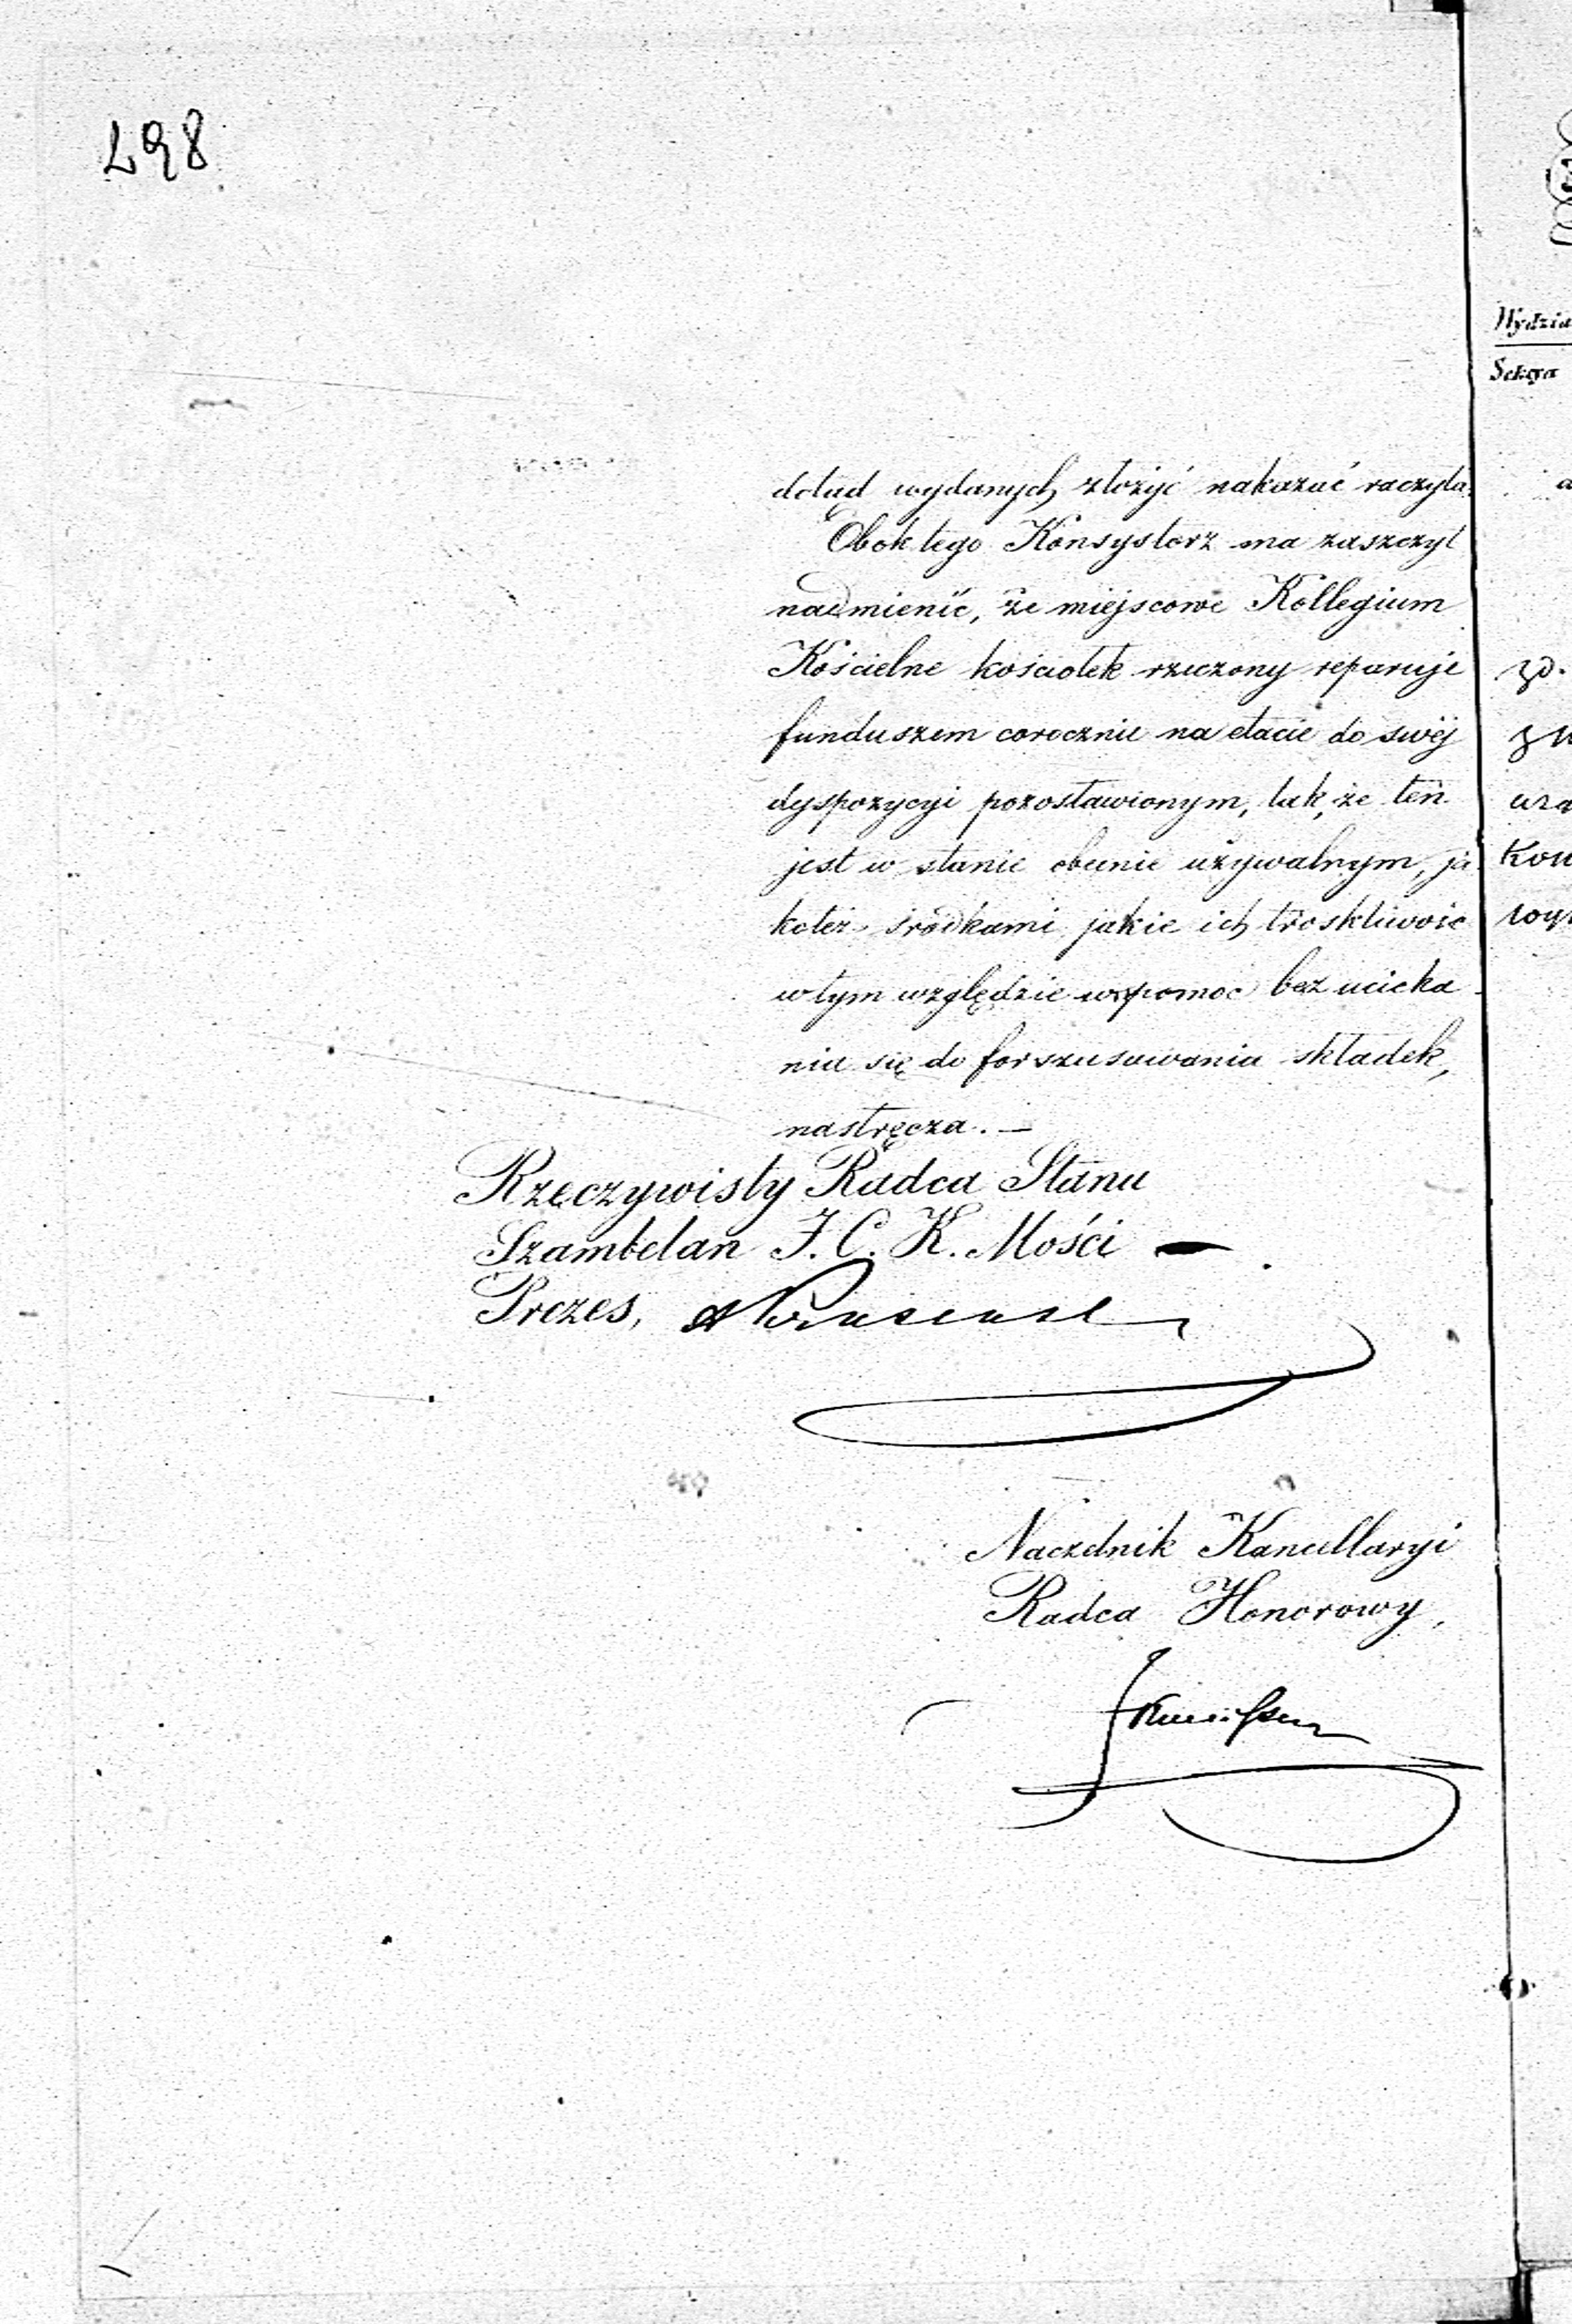 298
dotąd wydanych złożyć nakazać raczyła.
Obok tego Konsystorz ma zaszczyt
nadmienić, że miejscowe Kollegium
Kościelne kościołek rzeczony reparuje
funduszem corocznie na etacie do swéj
dyspozycyi pozostawionym, tak, że ten
jest w stanie obecnie używalnym, ja
koteż środkami jakie ich troskliwość
w tym względzie wspomóc bez ucieka
nia się do forszusowania składek,
nastręcza. —
Rzeczywisty Radca Stanu
Szambelan J. C. K. Mości
Prezes,
Naczelnik Kancellaryi
Radca Honorowy,
Wydzia
Sekcya